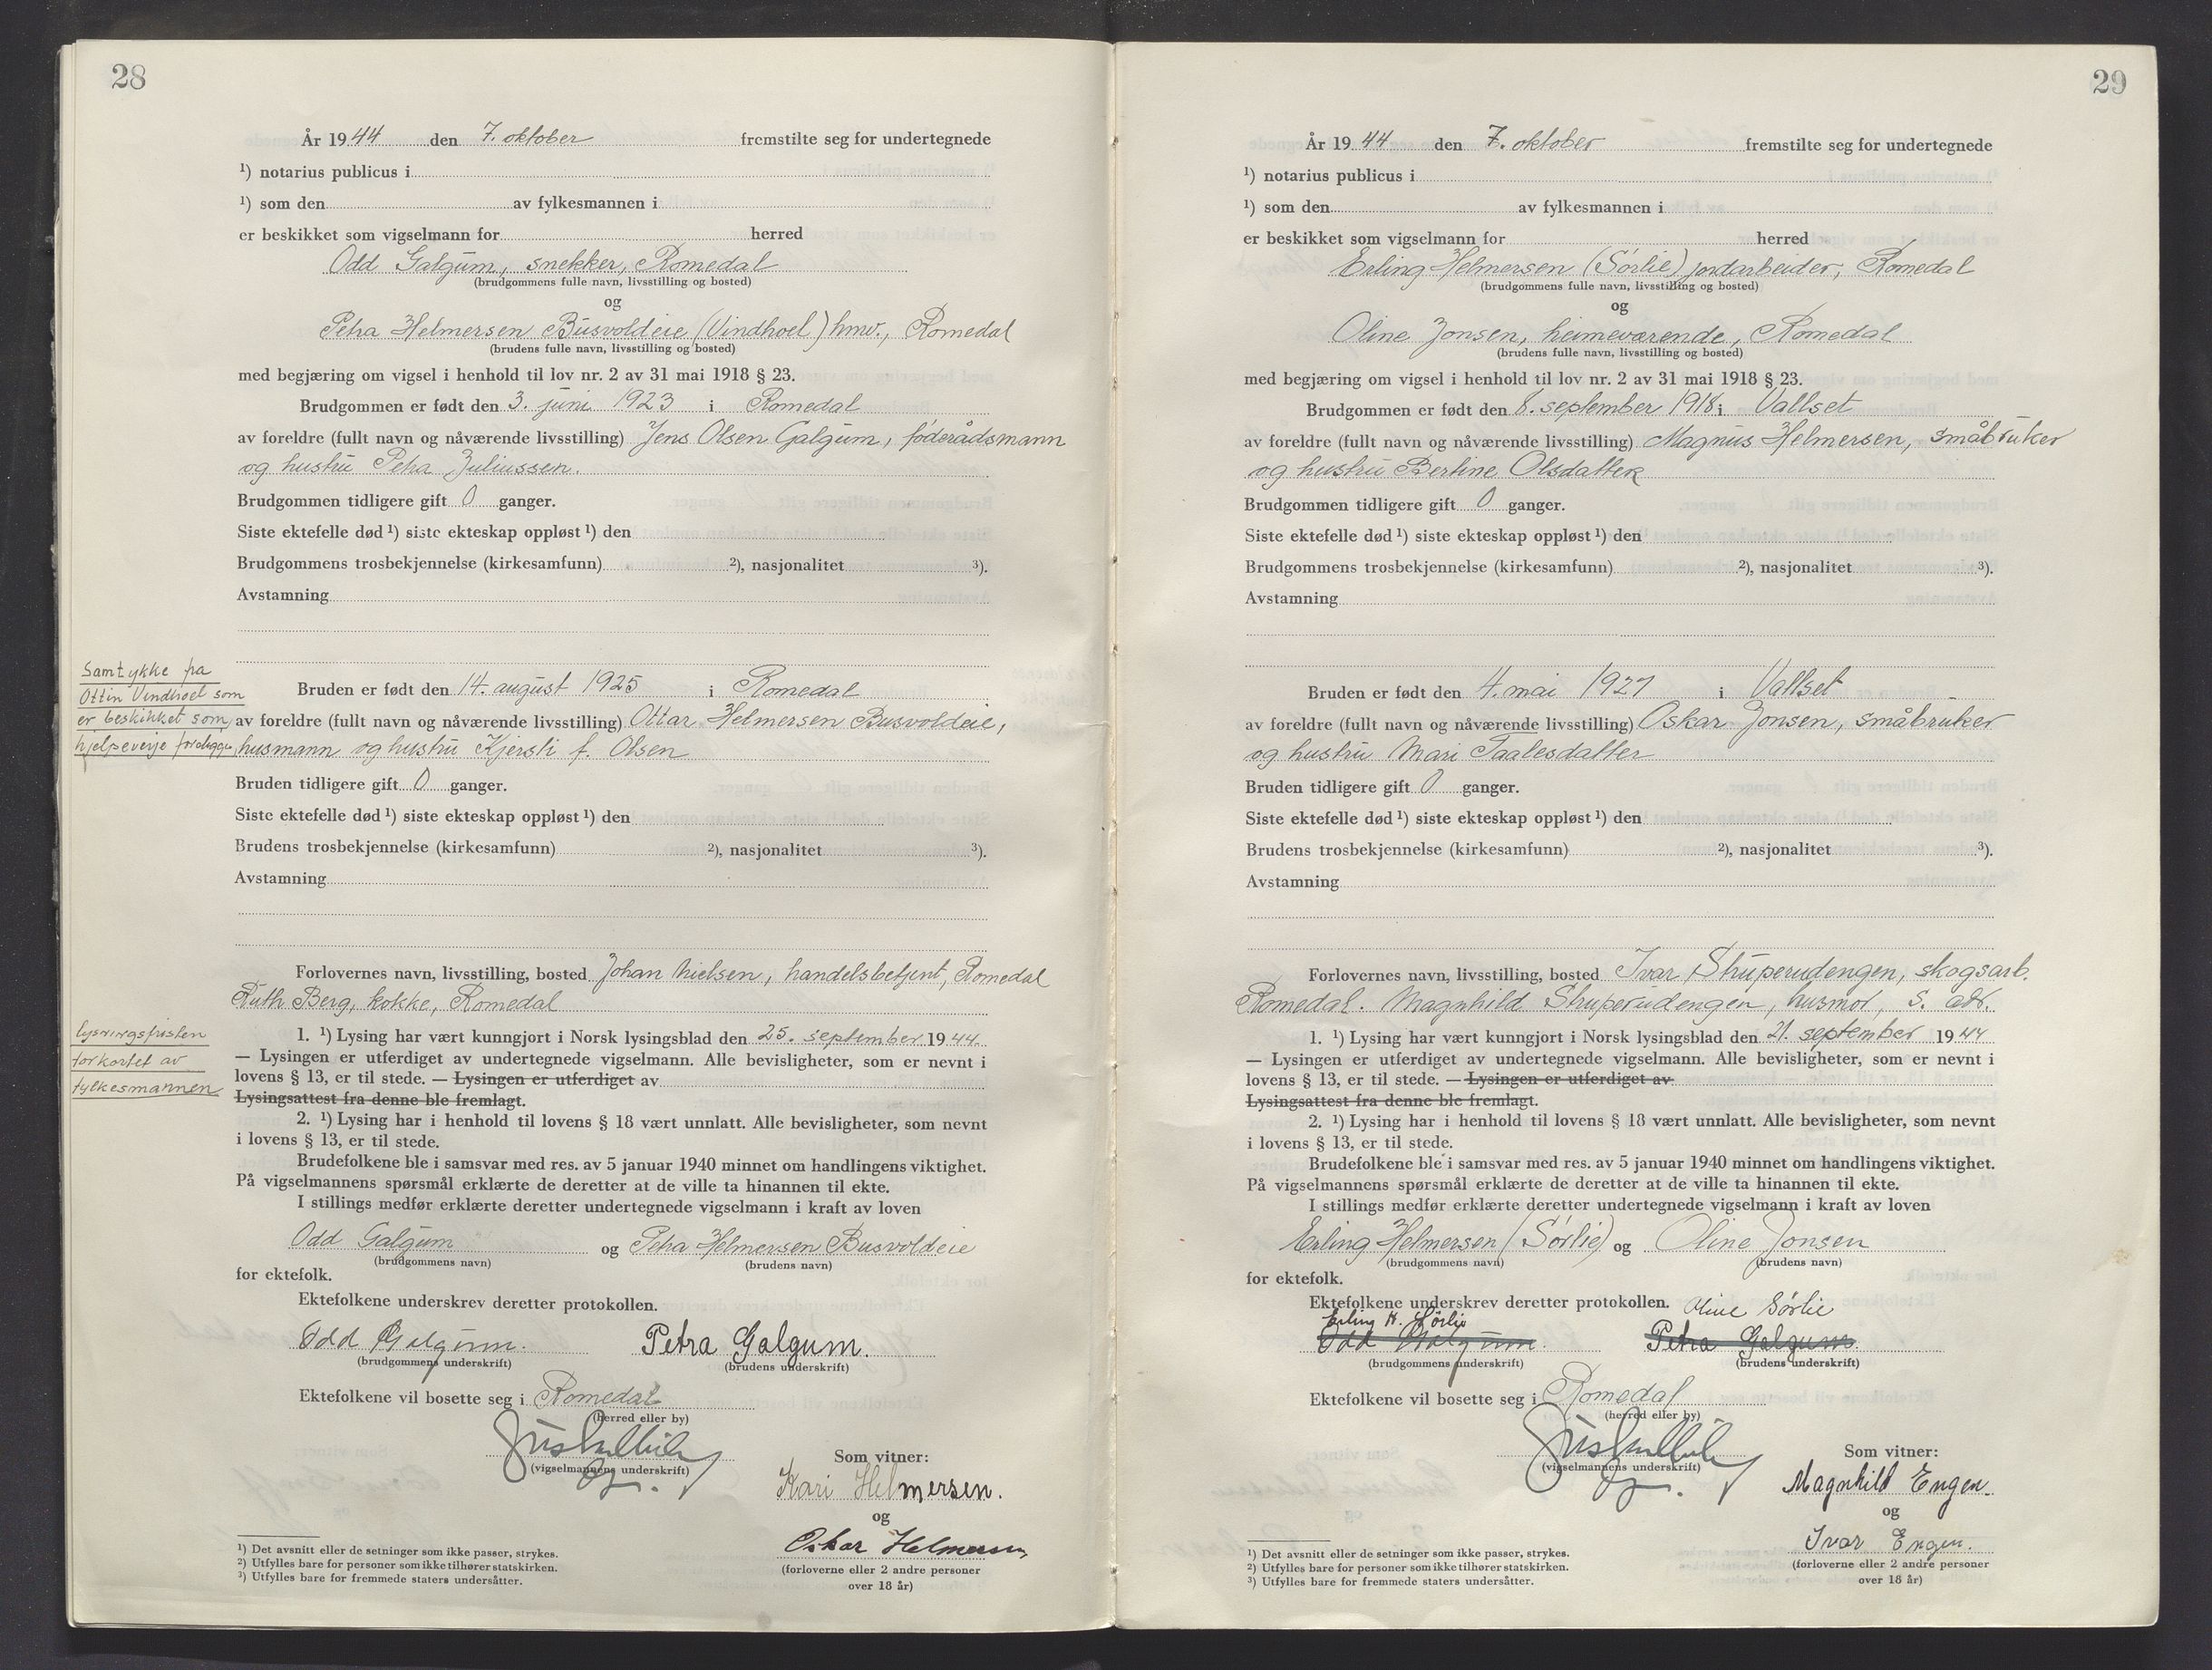 28
År 1944 den 7. oktober fremstilte seg for undertegnede
¹) notarius publicus i
¹) som den av fylkesmannen i
er beskikket som vigselmann for herred
Odd Galgum, snekker, Romedal
(brudgommens fulle navn, livsstilling og bosted)
og
Petra Helmersen Busvoldeie (Vindhoel) hmv., Romedal
(brudens fulle navn, livsstilling og bosted)
med begjæring om vigsel i henhold til lov nr. 2 av 31 mai 1918 § 23.
Brudgommen er født den 3. juni 1923 i Romedal
av foreldre (fullt navn og nåværende livsstilling) Jens Olsen Galgum, føderådsmann
og hustru Petra Juliussen.
Brudgommen tidligere gift 0 ganger.
Siste ektefelle død ¹) siste ekteskap oppløst ¹) den
Brudgommens trosbekjennelse (kirkesamfunn) ²), nasjonalitet ³).
Avstamning
Samtykke fra
Ottin Vindhoel som
er beskikket som
hjelpeverje foreligger
Bruden er født den 14. august 1925 i Romedal
av foreldre (fullt navn og nåværende livsstilling) Ottar Helmersen Busvoldeie,
husmann og hustru Kjersti f. Olsen
Bruden tidligere gift 0 ganger.
Siste ektefelle død ¹) siste ekteskap oppløst ¹) den
Brudens trosbekjennelse (kirkesamfunn) ²), nasjonalitet ³).
Avstamning
Forlovernes navn, livsstilling, bosted Johan Nielsen, handelsbetjent, Romedal
Ruth Berg, kokke, Romedal
lysningsfristen
forkortet av
fylkesmannen
1. ¹) Lysing har vært kunngjort i Norsk lysingsblad den 25. september 1944
— Lysingen er utferdiget av undertegnede vigselmann. Alle bevisligheter, som er nevnt i
lovens § 13, er til stede. — Lysingen er utferdiget av
Lysingsattest fra denne ble fremlagt.
2. ¹) Lysing har i henhold til lovens § 18 vært unnlatt. Alle bevisligheter, som nevnt
i lovens § 13, er til stede.
Brudefolkene ble i samsvar med res. av 5 januar 1940 minnet om handlingens viktighet.
På vigselmannens spørsmål erklærte de deretter at de ville ta hinannen til ekte.
I stillings medfør erklærte deretter undertegnede vigselmann i kraft av loven
Odd Galgum og Petra Helmersen Busvoldeie
(brudgommens navn) (brudens navn)
for ektefolk.
Ektefolkene underskrev deretter protokollen.
Odd Galgum. Petra Galgum.
(brudgommens underskrift) (brudens underskrift)
Ektefolkene vil bosette seg i Romedal
(herred eller by)
(vigselmannens underskrift)
Som vitner:
Kari Helmersen.
og
Oskar Helmersen
(forloverne eller 2 andre personer
over 18 år)
¹) Det avsnitt eller de setninger som ikke passer, strykes.
²) Utfylles bare for personer som ikke tilhører statskirken.
³) Utfylles bare for fremmede staters undersåtter.
29
År 1944 den 7. oktober fremstilte seg for undertegnede
¹) notarius publicus i
¹) som den av fylkesmannen i
er beskikket som vigselmann for herred
Erling Helmersen (Sørlie) jordarbeider, Romedal
(brudgommens fulle navn, livsstilling og bosted)
og
Oline Jonsen, heimeværende, Romedal
(brudens fulle navn, livsstilling og bosted)
med begjæring om vigsel i henhold til lov nr. 2 av 31 mai 1918 § 23.
Brudgommen er født den 8. september 1918 i Vallset
av foreldre (fullt navn og nåværende livsstilling) Magnus Helmersen, småbruker
og hustru Bertine Olsdatter
Brudgommen tidligere gift 0 ganger.
Siste ektefelle død ¹) siste ekteskap oppløst ¹) den
Brudgommens trosbekjennelse (kirkesamfunn) ²), nasjonalitet ³).
Avstamning
Bruden er født den 4. mai 1921 i Vallset
av foreldre (fullt navn og nåværende livsstilling) Oskar Jonsen, småbruker
og hustru Mari Paalesdatter
Bruden tidligere gift 0 ganger.
Siste ektefelle død ¹) siste ekteskap oppløst ¹) den
Brudens trosbekjennelse (kirkesamfunn) ²), nasjonalitet ³).
Avstamning
Forlovernes navn, livsstilling, bosted Ivar Struperudengen, skogsarb.
Romedal. Magnhild Struperudengen, husmor, s. adr.
1. ¹) Lysing har vært kunngjort i Norsk lysingsblad den 21. september 1944
— Lysingen er utferdiget av undertegnede vigselmann. Alle bevisligheter, som er nevnt i
lovens § 13, er til stede. — Lysingen er utferdiget av
Lysingsattest fra denne ble fremlagt.
2. ¹) Lysing har i henhold til lovens § 18 vært unnlatt. Alle bevisligheter, som nevnt
i lovens § 13, er til stede.
Brudefolkene ble i samsvar med res. av 5 januar 1940 minnet om handlingens viktighet.
På vigselmannens spørsmål erklærte de deretter at de ville ta hinannen til ekte.
I stillings medfør erklærte deretter undertegnede vigselmann i kraft av loven
Erling Helmersen (Sørlie) og Oline Jonsen
(brudgommens navn) (brudens navn)
for ektefolk.
Ektefolkene underskrev deretter protokollen.
Erling H. Sørlie Oline Sørlie
Odd Galgum. Petra Galgum
(brudgommens underskrift) (brudens underskrift)
Ektefolkene vil bosette seg i Romedal
(herred eller by)
(vigselmannens underskrift)
Som vitner:
Magnhild Engen.
og
Ivar Engen.
(forloverne eller 2 andre personer
over 18 år)
¹) Det avsnitt eller de setninger som ikke passer, strykes.
²) Utfylles bare for personer som ikke tilhører statskirken.
³) Utfylles bare for fremmede staters undersåtter.